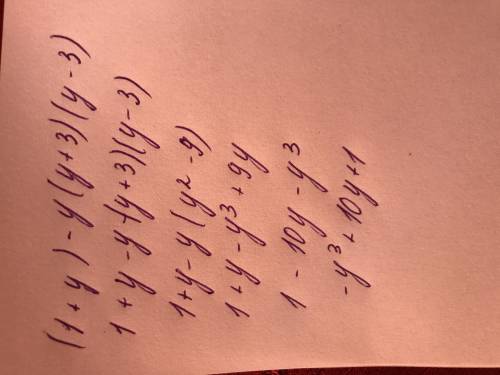 (1+y) - y(y+3)(y-3)
1+y-y+(y+3)(y-3)
1+y-y(y²-9)
1+y-y³+9y
1-10y-y³
-y³+10y+1